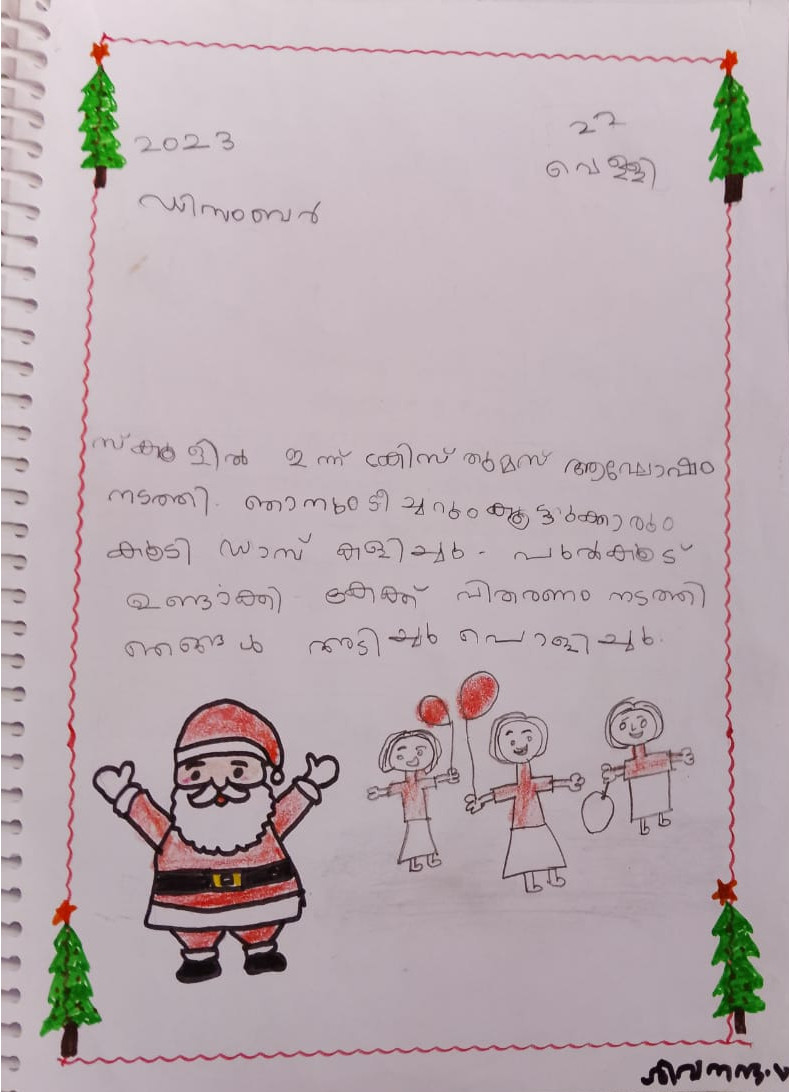 2023 22
വെള്ളി
ഡിസംബർ
സ്കൂളിൽ ഇന്ന് ക്രിസ്തുമസ് ആഘോഷം
നടത്തി. ഞാനും ടീച്ചറും കൂട്ടുകാരും
കൂടി ഡാന്സ് കളിച്ചു. പുൽകൂട്
ഉണ്ടാക്കി കേക്ക് വിതരണം നടത്തി
ഞങ്ങൾ അടിച്ചു പൊളിച്ചു.
ശിവനന്ദ.v